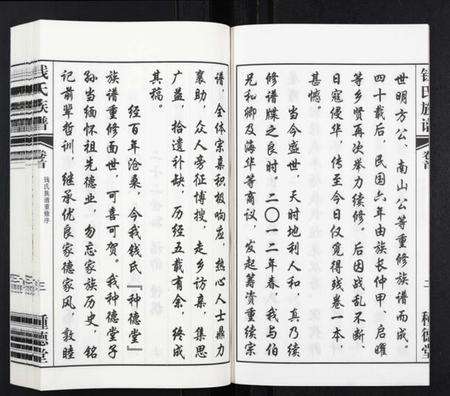 世明方公、南山公等重修族谱而成。
四十载后，民国六年由族长仲甲、启曜
等乡贤再次举力续修。后因战乱不断、
日寇侵华，传至今日仅觅得残卷一本，
甚憾。
当今盛世，天时地利人和，真乃续
修谱牒之良时，二〇一二年春，我与伯
兄和卿及海华等商议，发起筹资重续宗
谱，全体宗亲积极响应，热心人士鼎力
襄助，众人旁征博搜，走乡访亲，集思
广益，拾遗补缺，历经五载有余，终成
其稿。
经百年沧桑，今我钱氏『种德堂』
族谱重修面世，可喜可贺。我种德堂子
孙当缅怀祖先德业，勿忘家族历史，铭
记前辈哲训，继承优良家德家风，敦睦
钱氏族谱
卷首
二
种德堂
钱氏族谱
卷首
钱氏族谱重修序
三
种德堂